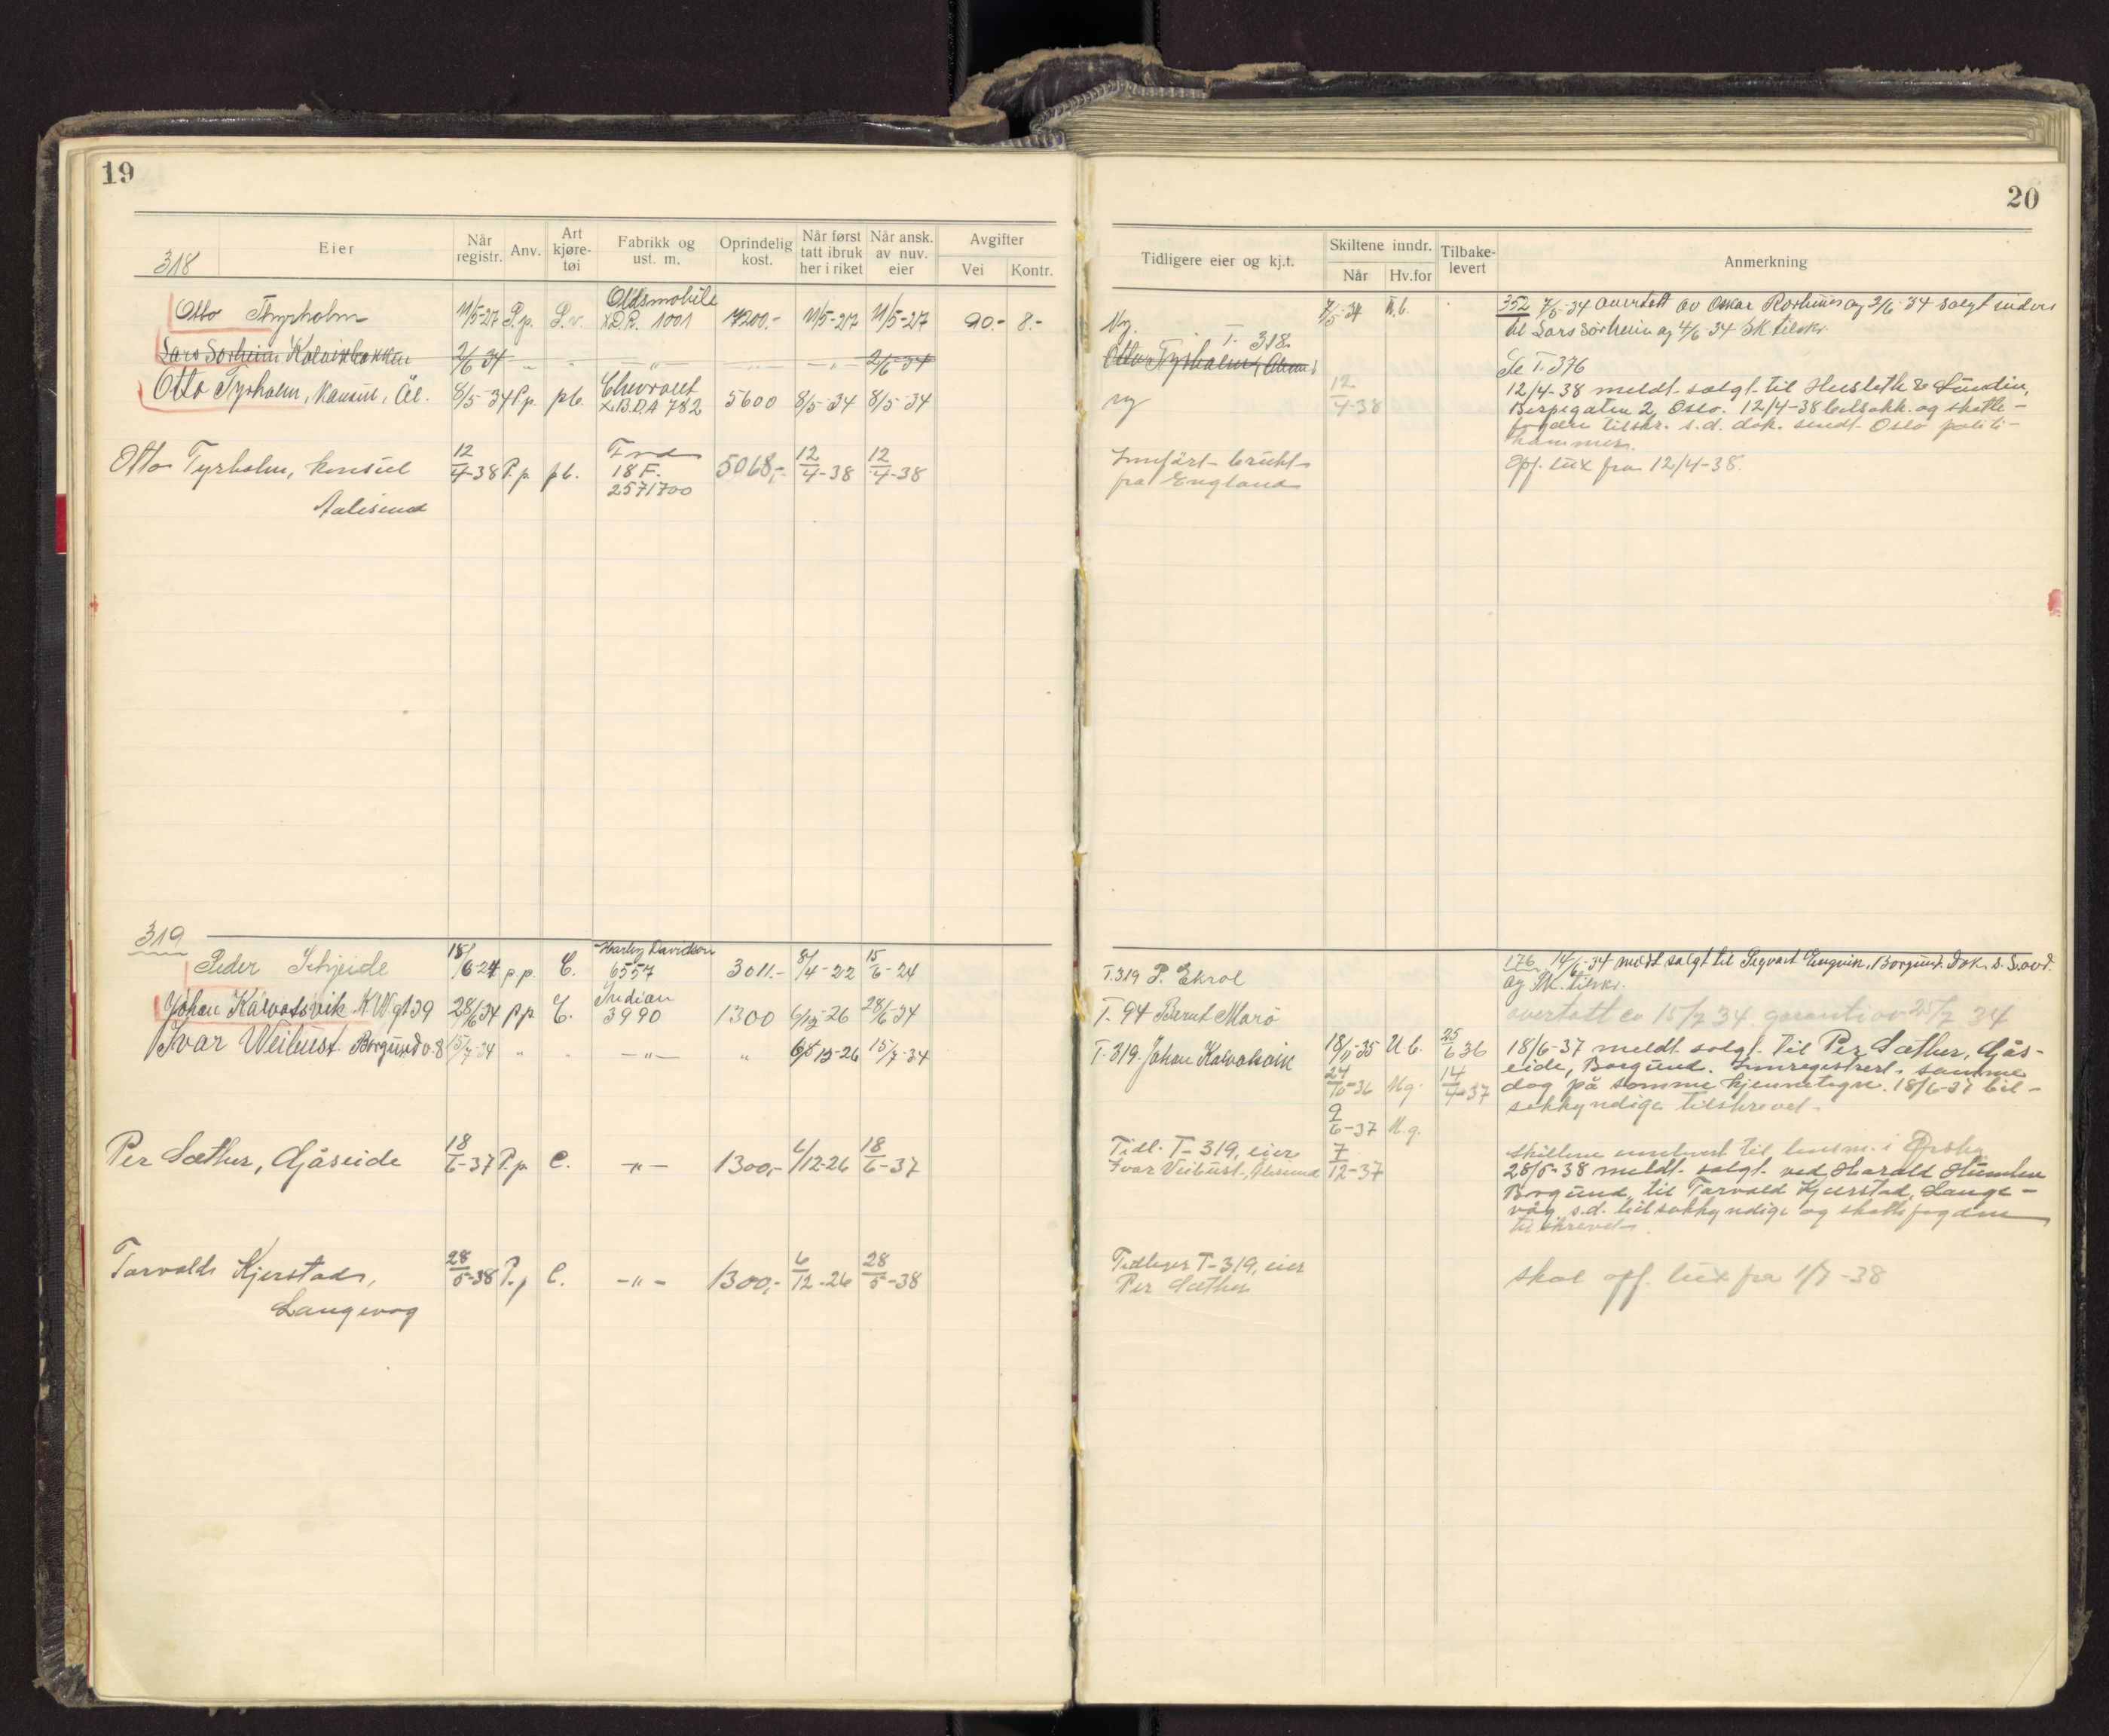 19
318
Eier
Når registr.
Anv.
Art kjøre- tøi
Fabrikk og ust. m.
Oprindelig kost.
Når først tatt ibruk her i riket
Når ansk. av nuv. eier
Avgifter
Vei
Kontr.
Otto Thyrholm 11/5-27 P.p. P.v. Oldsmobile XDR. 1001 4200.- 11/5-27 11/5-27 90.- 8.-
Lars Sorheim, Kalvikbakken 2/6 34 " - - " - " - 2/6-34
Otto Tyrholm, Konsul, Ål. 8/5-34 P.p. pb. Chevrolet X.B.D.A 782 5600 8/5-34 8/5-34
Otto Tyrholm, konsul 12/4-38 P.p. pb. Ford 18 F. 5068,- 12/4-38 12/4-38
Aalesund 2571700
319
Peder Schjeide 18/6-24 p.p. C. Harley Davidson 6557 3011.- 8/4-22 15/6-24
Johan Kalvatsvik K.W.gt 39 28/6 34 p p C. Indian 3990 1300 6/12-26 28/6-34
Ivar Weibust. Borgund v. 8 15/7-34 " - - " - " 6/12-26 15/7-34
Per Sæther, Gåseide 18/6-37 P.p. C. - " - 1300,- 6/12-26 18/6-37
Torvald Kjerstad, 28/5-38 P.p C. - " - 1300,- 6/12-26 28/5-38
Langevåg
20
Tidligere eier og kj.t.
Skiltene inndr.
Når
Hv.for
Tilbake- levert
Anmerkning
Ny. 7/5-34 U.b. 352 7/5-34 overtatt av Oskar Rorhuus og 2/6-34 solgt videre
til Lars Sorheim og 4/6-34 SK. tilskr.
T. 318.
Otto Tyrholm, Ålesund Se T. 376
ny 12/4-38 12/4-38 meldt solgt til Husleth & Lundin,
Bispegaten 2, Oslo. 12/4-38 bilsakk. og skatte-
fogden tilskr. s.d. dok. sendt Oslo politi-
kammer.
Innført brukt Opf. lux fra 12/4-38.
fra England
T.319 P. Ekrol 176 14/6-34 meldt solgt til Sigvart Engvik, Borgund. Dok s. Lovd.
og SK. tilskr.
T. 94 Bernt Marö overtatt av 15/7 34. garanti av 25/7 34
T. 319. Johan Kalvatsvik 18/11-35 U.b. 25/6 36 18/6-37 meldt solgt til Per Sæther, Gås-
24/10-36 Ug. 14/4-37 eide, Borgund. Innregistrert samme
dag på samme kjennetegn. 18/6-37 bil-
9/6-37 U.g. sakkyndige tilskrevet.
Tidl. T-319, eier 7/12-37 Skiltene innlevert til lensm. i Ørskog
Ivar Veibust, Ålesund 28/5-38 meldt solgt ved Harald Humlen
Borgund, til Torvald Kjerstad, Lange-
våg s.d. bilsakkyndige og skattefogden
tilskrevet.
Tidliger T-319, eier
Per Sæther skal opf. lux fra 1/7-38